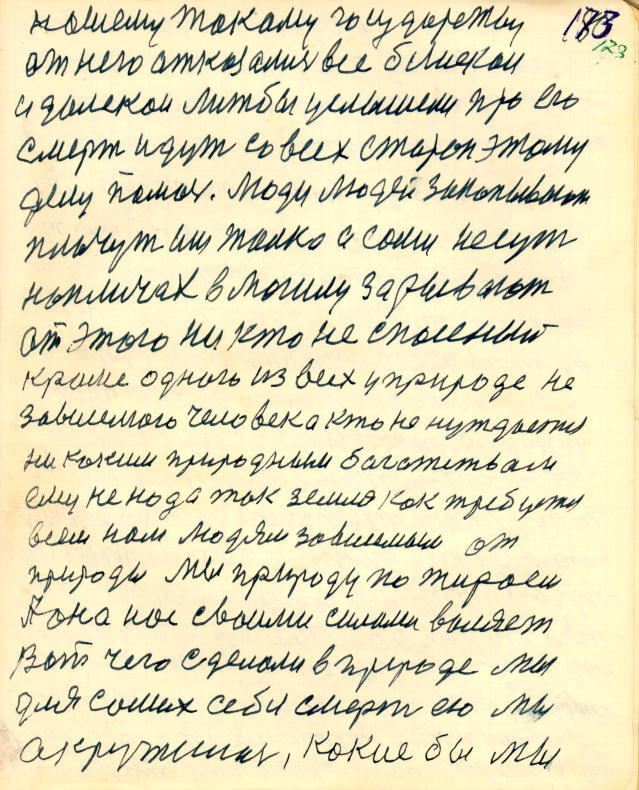 183
173
нашему такому государству
от него отказалися все близкой
и далекой литбы услышели про его
смерт идут со всех старон этому
делу помоч. Люди людей закапывают
плачут им жалко а сами несут
на пличах в могилу зарывают
от этого ни кто не спасеный
кроме одного из всех у природе не
зависемого человека кто не нуждается
ни какими природными богатствами
ему не нада так земля как требуется
всем нам людям зависимым от
природы мы природу по тираем
А она нас своими силами воляет
Вот чего сделали в природе мы
для самих себя смерт ею мы
акружины, какие бы мы